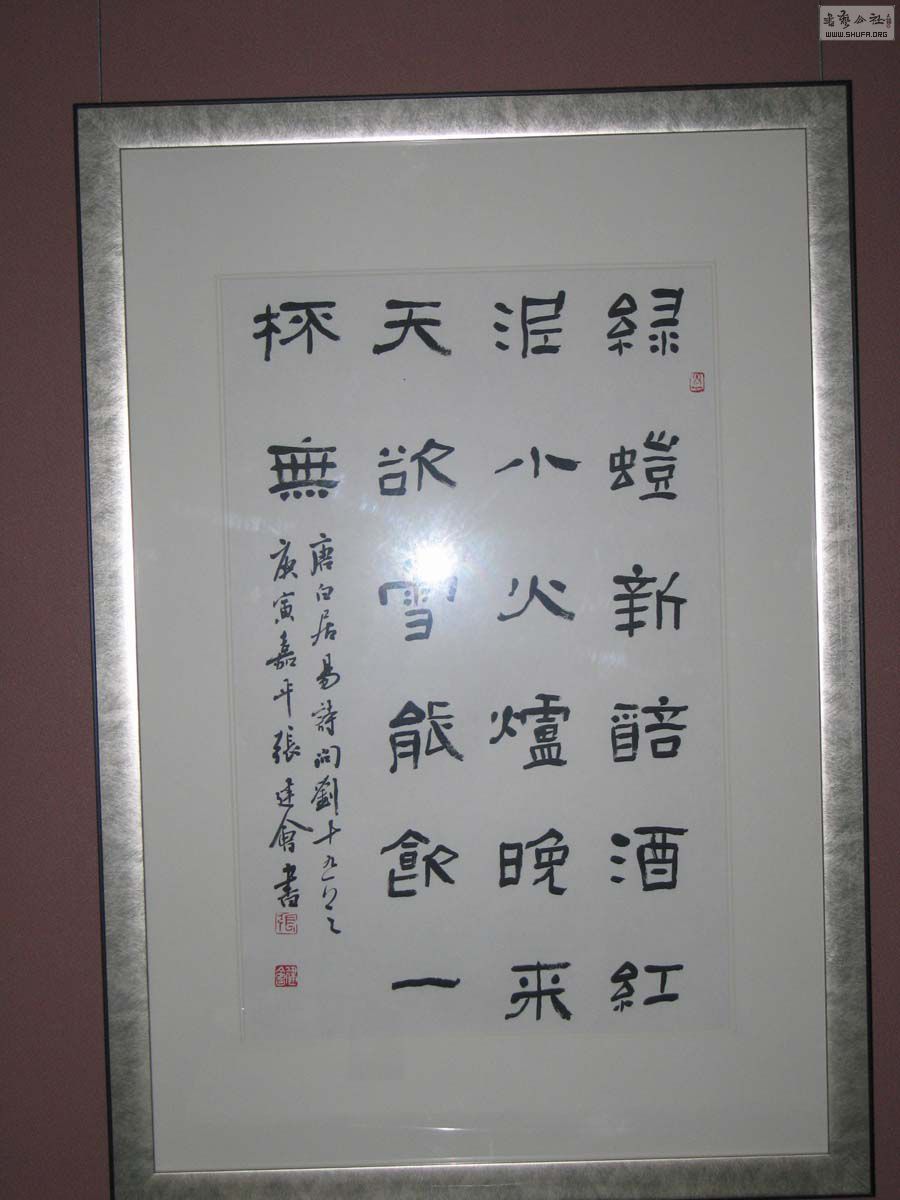 緑螘新醅酒紅
泥小火爐晚来
天欲雪能飲一
杯無
唐白居易詩问劉十九一首
庚寅嘉平張建會書
張
建會
書藝公社
WWW.SHUFA.ORG